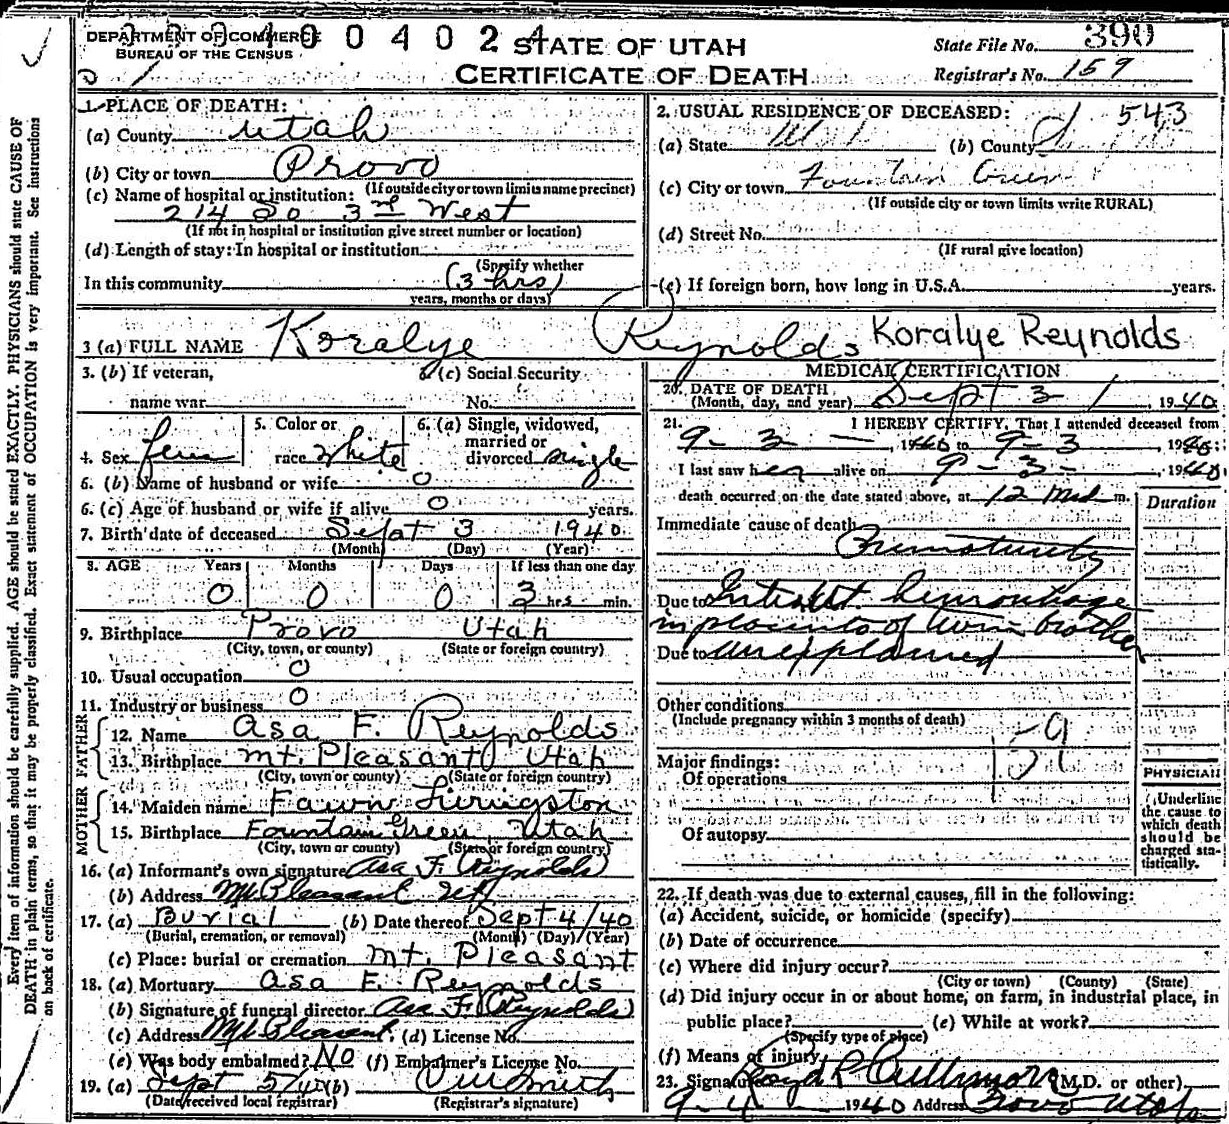 DEPARTMENT OF COMMERCE
BUREAU OF THE CENSUS
0 0 4 0 2 4
STATE OF UTAH
CERTIFICATE OF DEATH
State File No. 390
Registrar's No. 159
1. PLACE OF DEATH:
(a) County Utah
(b) City or town Provo
(If outside city or town limits name precinct)
(c) Name of hospital or institution:
214 So 3rd West
(If not in hospital or institution give street number or location)
(d) Length of stay: In hospital or institution
(Specify whether
In this community (3 hrs)
years, months or days)
2. USUAL RESIDENCE OF DECEASED: 543
(a) State (b) County
(c) City or town Fountain Green
(If outside city or town limits write RURAL)
(d) Street No.
(If rural give location)
(e) If foreign born, how long in U.S.A. years.
3 (a) FULL NAME Koralye Reynolds Koralye Reynolds
3. (b) If veteran,
name war
(c) Social Security
No.
4. Sex fem
5. Color or
race White
6. (a) Single, widowed,
married or
divorced single
6. (b) Name of husband or wife 0
6. (c) Age of husband or wife if alive 0 years.
7. Birth date of deceased Sept 3 1940
(Month) (Day) (Year)
8. AGE Years Months Days If less than one day
0 0 0 3 hrs. min.
9. Birthplace Provo Utah
(City, town, or county) (State or foreign country)
10. Usual occupation 0
11. Industry or business 0
FATHER
12. Name Asa F. Reynolds
13. Birthplace Mt. Pleasant Utah
(City, town or county) (State or foreign country)
MOTHER
14. Maiden name Fawn Livingston
15. Birthplace Fountain Green, Utah
(City, town or county) (State or foreign country)
16. (a) Informant's own signature Asa F. Reynolds
(b) Address Mt Pleasant Ut
17. (a) Burial (b) Date thereof Sept 4/40
(Burial, cremation, or removal) (Month) (Day) (Year)
(c) Place: burial or cremation Mt. Pleasant
18. (a) Mortuary Asa F. Reynolds
(b) Signature of funeral director Asa F. Reynolds
(c) Address Mt Pleasant. (d) License No.
(e) Was body embalmed? NO (f) Embalmer's License No.
19. (a) Sept 5/40 (b)
(Date received local registrar) (Registrar's signature)
MEDICAL CERTIFICATION
20. DATE OF DEATH
(Month, day, and year) Sept 3, 1940
21. I HEREBY CERTIFY, That I attended deceased from
9-3-, 1940 to 9-3, 1940;
I last saw her alive on 9-3-, 1940
death occurred on the date stated above, at 12 Mid m.
Duration
Immediate cause of death
Prematurity
Due to hemorrhage
in placenta of twin brother
Due to unexplained
Other conditions
(Include pregnancy within 3 months of death)
Major findings:
Of operations
Of autopsy
PHYSICIAN
Underline
the cause to
which death
should be
charged sta-
tistically.
22. If death was due to external causes, fill in the following:
(a) Accident, suicide, or homicide (specify)
(b) Date of occurrence
(c) Where did injury occur?
(City or town) (County) (State)
(d) Did injury occur in or about home, on farm, in industrial place, in
public place? (e) While at work?
(Specify type of place)
(f) Means of injury
23. Signature (M.D. or other)
9-4 1940 Address Provo Utah
Every item of information should be carefully supplied. AGE should be stated EXACTLY. PHYSICIANS should state CAUSE OF
DEATH in plain terms, so that it may be properly classified. Exact statement of OCCUPATION is very important. See instructions
on back of certificate.